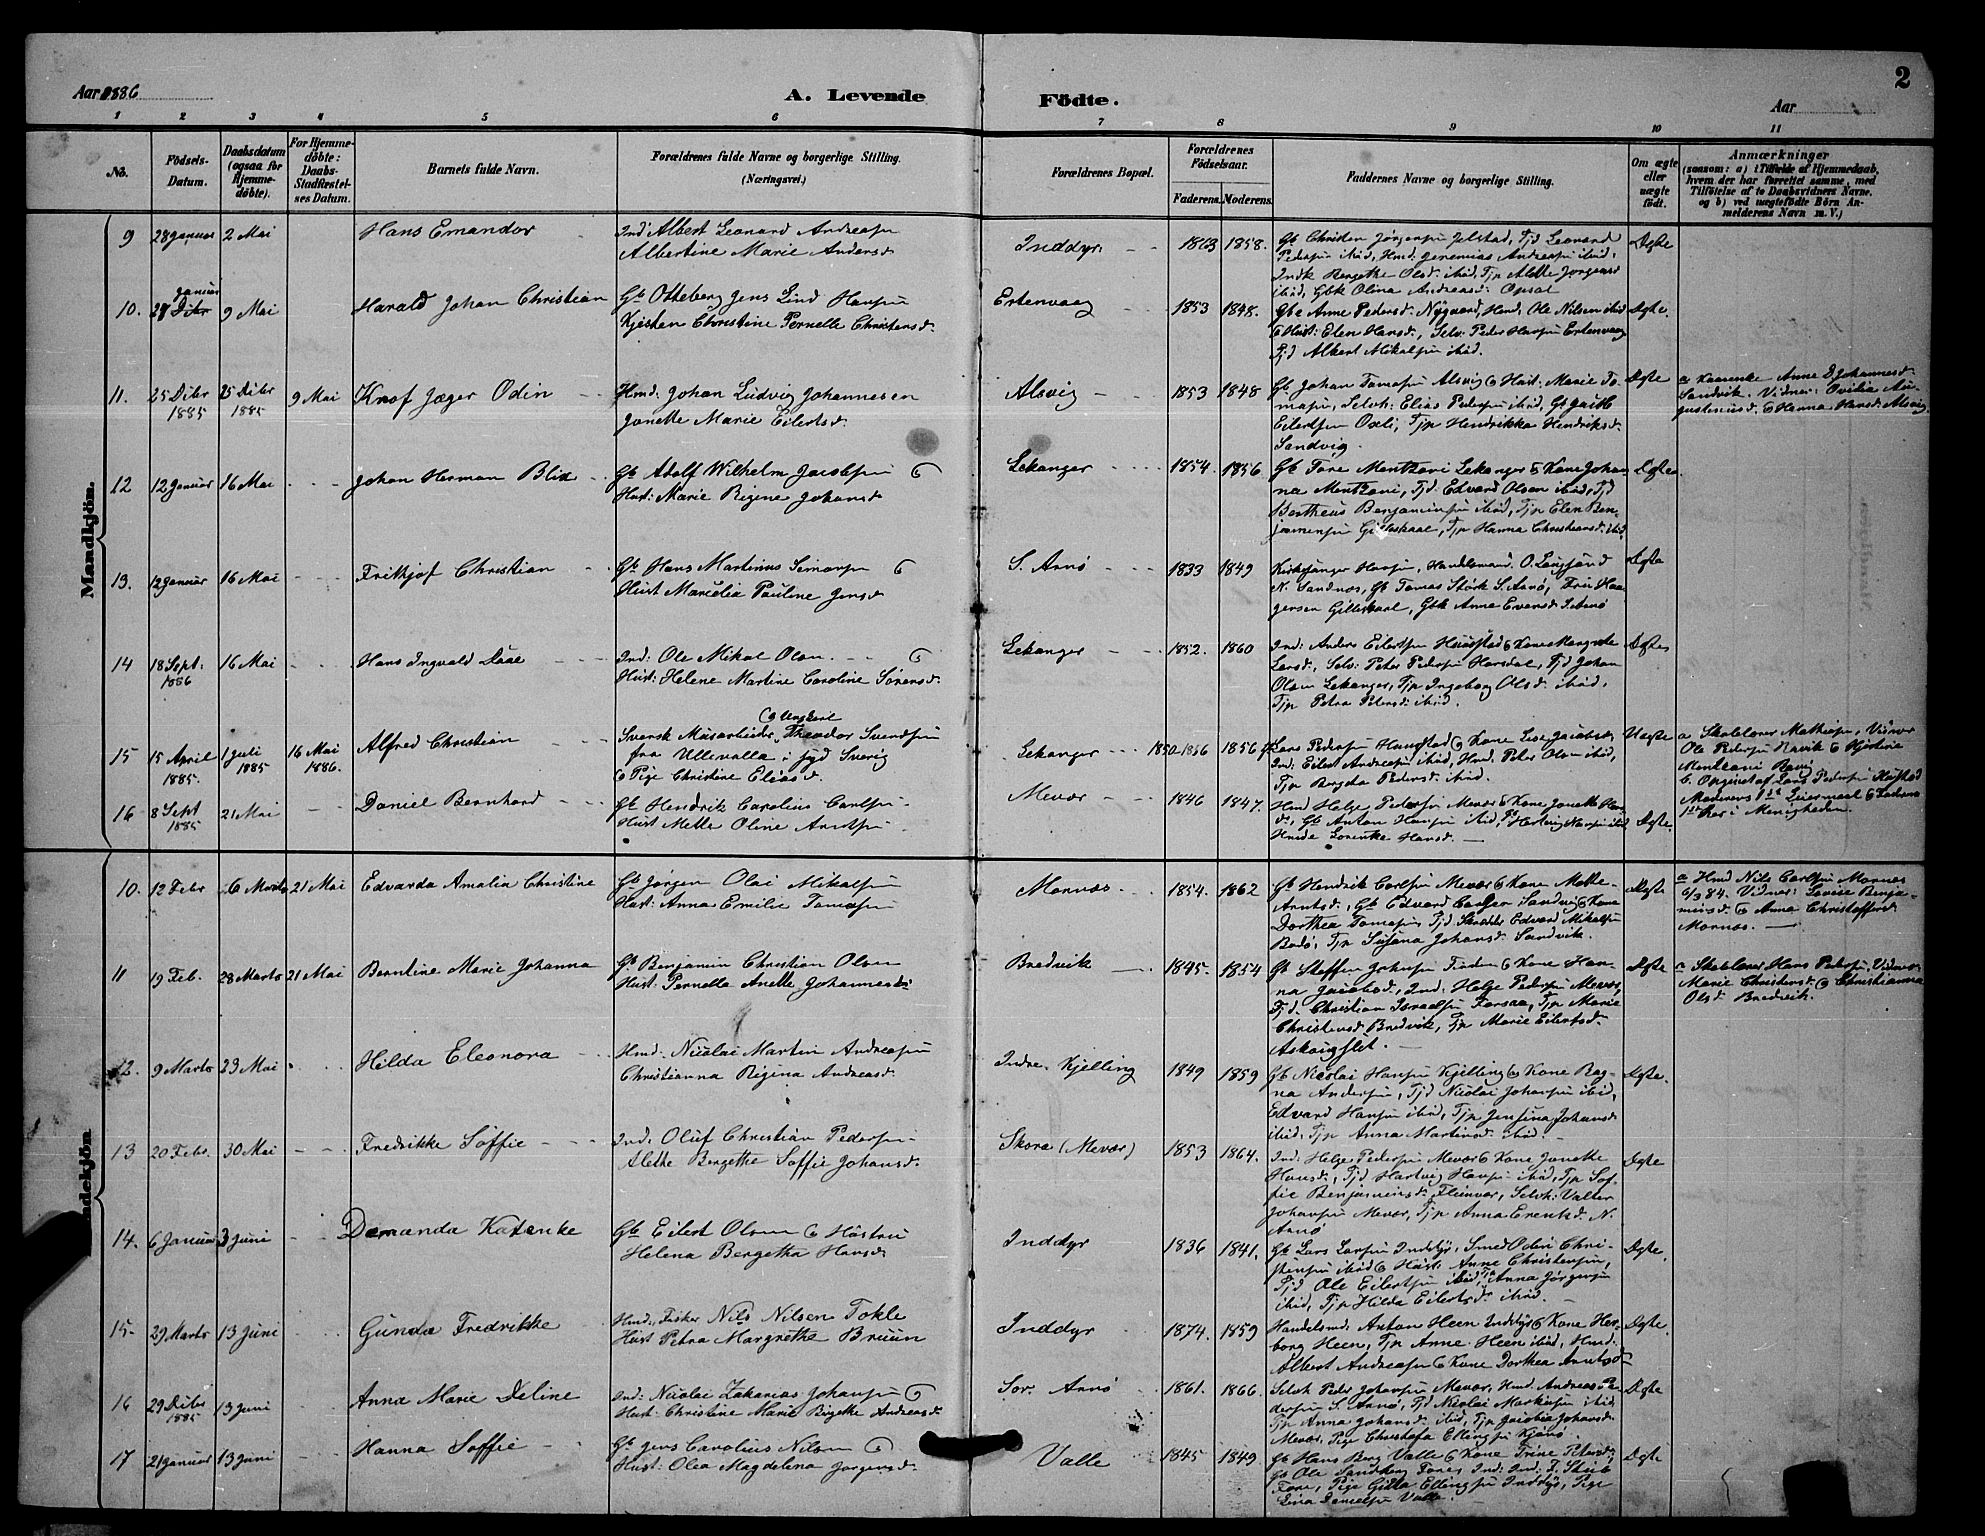 2
Aar 1886
A. Levende
Födte.
Aar
1 2 3 4 5 6 7 8 9 10 11
No.
Födsels-Datum.
Daabsdatum (ogsaa for Hjemme-döbte).
For Hjemme-döbte: Daabs-Stadfæstel-ses Datum.
Barnets fulde Navn.
Forældrenes fulde Navne og borgerlige Stilling. (Næringsvei.)
Forældrenes Bopæl.
Forældrenes Födselsaar.
Faderens. Moderens.
Faddernes Navne og borgerlige Stilling.
Om ægte eller uægte födt.
Anmærkninger
(saasom: a) i Tilfælde af Hjemmedaab,
hvem der har forrettet samme, med
Tilföielse af to Daabsvidners Navne.
og b) ved uægtefödte Börn An-
melderens Navn m. V.)
Mandkjön.
9 28 januar 2 Mai Hans Emandor Ind: Albert Leonard Andreasen
Albertine Marie Andersd.
Inddyr. 1863 1858. Gb Christen Jørgensen Jelstad, Tjd Leonard
Pedersen ibid, Hmd: Jeremias Andreasen ibid,
Ægte
10. 27 januar 9 Mai Harald Johan Christian Gb Otteberg Jens Lind Hansen
Kjesten Christine Pernelle Christensd.
Ertenvaag 1853 1848. Gbe Anne Pedersd. Nygaard, Hmd. Ole Nilsen ibid
& Hust: Elen Hansd., Selv: Peder Hansen Ertenvaag
Tjd Albert Mikalsen ibid.
Ægte.
11. 25 Dcbr 1885 25 Dcbr 1885 9 Mai Knof Jæger Odin Hmd: Johan Ludvig Johannesen
Janette Marie Eilertsd.
Alsvig 1853 1848 Gb Johan Tomasen Alsvig & Hust: Marie To-
masen, Selvh: Elias Pedersen ibid,
Eilertsen Oxli, Tjp Hendrikka Hendriksd.
Sandvig.
Ægte
12 12 januar 16 Mai Johan Herman Blix Gb Adolf Wilhelm Jacobsen &
Hust: Marie Regine Johansd.
Lekanger 1854. 1856. Gb Tore Mentzoni Lekanger & Kone Johan-
na Mentzoni, Tjd: Edvard Olsen ibid, Tjd
Bortheus Benjaminsen ibid, Tjp Elen Ben-
jaminsen Gilleskaal, Tjp Hanna Christiansd. ibid
Ægte
13. 12 januar 16 Mai Frithjof Christian Gb Hans Martinus Simonsen &
Hust Marcelia Pauline Jensd.
S. Arnø 1833 1849 Kirkesanger Hansen, Handelsmand O. Langsund
N. Sandnes, Gb Tomas Størk S. Arnø, Fru Haa-
gensen Gilleskaal, Gbk Anne Evensd. S. Arnø
Ægte
14 18 Sept. 1886 16 Mai Hans Ingvald Daae Ind: Ole Mikal Olsen &
Hust: Helene Martine Caroline Sørensd.
Lekanger 1852. 1860 Ind: Anders Eilertsen Haugstad & Kone Margrete
Larsd., Selv: Peter Pedersen Horsdal, Tjd Johan
Olsen Lekanger, Tjp Ingeborg Olsd. ibid,
Tjp Petra Petersd. ibid.
Ægte
15 15 April 1885. 1 Juli 1885 16 Mai 1886. Alfred Christian & Ungkarl
Svensk Minearbeider, Theodor Svendsen
fra Ullevalla i Syd Sverig
& Pige Christine Eliasd.
Lekanger 1856 Lars Pedersen Haugstad & Kone
Ind: Eilert Andreasen ibid, Hmd. Peter Olsen ibid,
Tjp Bergita Pedersd. ibid.
Uægte a Skolelærer Mathisen, Vidner
Ole Pedersen & Kjerstine
Mentzoni
Lars Pedersen Haugstad
Moderens 1ste Leiermaal & Faderens
1ste her i Menigheden.
16 8 Sept 1885 21 Mai Daniel Bernhard Gb Hendrik Carolius Carlsen
Hust Mette Oline Arntsen
Mevær 1846 1847. Hmd Helge Pedersen Mevær & Kone Janette Han-
d., Gb Anton Hansen ibid, Hartvig Hansen ibid
Lorentze Hansd.
Ægte.
10. 12 Febr 6 Marts 21 Mai Edvarda Amalia Christine Gb Jørgen Olai Mikalsen
Hust: Anna Emilie Tomasen
Mornæs 1854. 1862 Gb Hendrik Carlsen Mevær & Kone Mette
Arntsd., Gb Edvard Sandvig & Kone
Dorthea Tomasen, Tjd Skrædder Edvard Mikalsen
Bodø, Tjp Susana Johansd. Sandvik.
Ægte a Hmd Nils Carlsen Mornæs
6/3 84. Vidner: Lovise Benja-
minsd. & Anna Christoffersd.
Mornæs.
11 19 Feb. 28 Marts 21 Mai Berntine Marie Johanna Gb Benjamin Christian Olsen
Hust: Pernella Anette Johannesd.
Bredvik 1845. 1854 Gb Steffen Johnsen & Kone Han-
na Jacobsd., Ind: Helge Pedersen Mevær,
Tjd. Christian Israelsen Forsaa, Tjp Marie
Christensd. Bredvik, Tjp Marie Eilertsd.
Ægte a Skolelærer Hans Pedersen, Vidner
Marie Christensd. & Christianna
Olsd. Bredvik.
12. 9 Marts 23 Mai Hilda Eleonora Hmd: Nicolai Martin Andreasen
Christianna Regina Andreasd.
Indre Kjelling 1849 1859 Gb Nicolai Hansen Kjelling & Kone Rag-
na Andersen, Tjd Nicolai Johansen ibid,
Edvard Hansen ibid, Tjp Jensina Johansd.
ibid, Tjp Anna Martinsd. ibid.
Ægte.
13 20 Febr. 30 Mai Fredrikke Soffie Ind: Oluf Christian Pedersen
Alethe Bergethe Soffie Johansd.
Skora (Mevær) 1853 1864. Ind: Helge Pedersen Mevær & Kone Janette
Hansd., Tjd Hartvig Hansen ibid, Tjp Sof-
fie Benjaminsd. Fleinvær, Selvh: Valter
Johansen Mevær, Tjp Anna Erentsd. N.
Arnø
Ægte
14. 6 Januar 3 Juni Demanda Katenke Gb Eilert Olsen & Hustru
Helena Bergetha Hansd.
Inddyr 1836 1841. Gb Lars Larsen Inddyr, Smed Odin Chri-
stensen ibid & Hust: Anne Christensen,
Tjd Ole Eilertsen ibid, Anna Jørgensen
ibid, Tjp Hilda Eilertsd. ibid.
Ægte.
15. 29 Marts 13 Juni Gunda Fredrikke Hmd, Fisker Nils Nilsen Tokle
Hust Petra Margrethe Bruun
Inddyr 1874. 1859 Handelsmd: Anton Heen Inddyr & Kone Her-
borg Heen, Tjp Anne Heen ibid, Hmd:
Albert Andreasen & Kone Dorthea Arntsd
Ægte.
16 29 Dcbr 1885 13 Juni Anna Marie Deline Ind: Nicolai Zakarias Johansen &
Hust: Christine Marie Birgethe Andreasd.
Sør. Arnø 1861. 1866. Selvh Peder Johansen Mevær, Hmd. Andreas Pe-
dersen S. Arnø, Tjd Nicolai Markusen ibid
Tjp Anna Johansd. ibid, Tjp Jacobia Johansd.
Mevær, Pige Christofa Ellingsen
Ægte
17 21 januar 13 Juni Hanna Soffie Gb Jens Carolius Nilsen &
Hust: Olea Magdelena Jørgensd.
Valle 1845 1849 Gb Hans Berg Valle & Kone Trine Petersd.,
Gb Ole Sandberg Fore,
Fore, Pige Gitta Ellingsen Inddyr, Pige
Lina Danielsen Valle.
Ægte